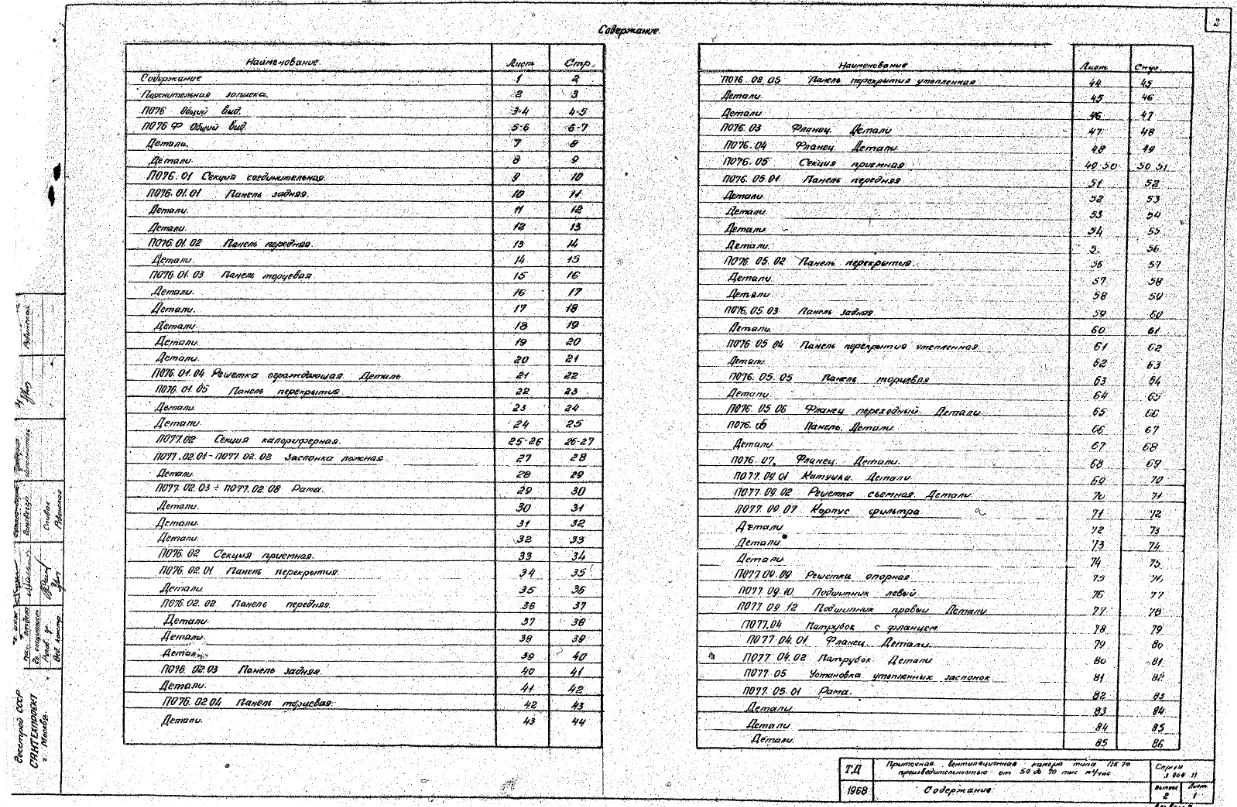 2
Содержание
Наименование Лист Стр.
Содержание 1 2
Пояснительная записка. 2 3
П076 Общий вид. 3-4 4-5
П076 Ф Общий вид. 5-6 6-7
Детали. 7 8
Детали. 8 9
П076.01 Секция соединительная. 9 10
П076.01.01 Панель задняя. 10 11
Детали. 11 12
Детали. 12 13
П076.01.02 Панель передняя. 13 14
Детали. 14 15
П076.01.03 Панель торцевая 15 16
Детали. 16 17
Детали. 17 18
Детали. 18 19
Детали. 19 20
Детали. 20 21
П076.01.04 Решетка ограждающая Деталь 21 22
П076.01.05 Панель перекрытия 22 23
Детали 23 24
Детали 24 25
П077.02 Секция калориферная. 25-26 26-27
П077.02.01-П077.02.02 Заслонка ложная. 27 28
Детали. 28 29
П077.02.03 ÷ П077.02.08 Рама. 29 30
Детали. 30 31
Детали. 31 32
Детали. 32 33
П076.02 Секция приемная. 33 34
П076.02.01 Панель перекрытия. 34 35
Детали. 35 36
П076.02.02 Панель передняя. 36 37
Детали. 37 38
Детали. 38 39
Детали. 39 40
П076.02.03 Панель задняя. 40 41
Детали. 41 42
П076.02.04 Панель торцевая. 42 43
Детали. 43 44
Наименование Лист Стр.
П076.02.05 Панель перекрытия утепленная 44 45
Детали 45 46
Детали 46 47
П076.03 Фланец. Детали 47 48
П076.04 Фланец Детали. 48 49
П076.05 Секция приемная 49-50 50-51
П076.05.01 Панель передняя 51 52
Детали 52 53
Детали 53 54
Детали 54 55
Детали 5. 56
П076.05.02 Панель перекрытия. 56 57
Детали. 57 58
Детали 58 59
П076.05.03 Панель задняя 59 60
Детали. 60 61
П076.05.04 Панель перекрытия утепленная. 61 62
Детали. 62 63
П076.05.05 Панель торцевая 63 64
Детали. 64 65
П076.05.06 Фланец переходный Детали 65 66
П076.06 Панель. Детали 66 67
Детали. 67 68
П076.07. Фланец. Детали. 68 69
П077.09.01 Катушка. Детали 69 70
П077.09.02 Решетка съемная. Детали 70 71
П077.09.07 Корпус фильтра 71 72
Детали 72 73
Детали 73 74
Детали 74 75
П077.09.09 Решетка опорная. 75 76
П077.09.10 Подшипник левый 76 77
П077.09.12 Подшипник правый Детали 77 78
П077.04 Патрубок с фланцем 78 79
П077.04.01 Фланец. Детали. 79 80
П077.04.02 Патрубок Детали 80 81
П077.05 Установка утепленных заслонок 81 82
П077.05.01 Рама. 82 83
Детали 83 84
Детали 84 85
Детали. 85 86
ТД Приточная вентиляционная камера типа ПК 70 Серия
производительностью от 50 до 70 тыс м³/час
1968 Содержание Выпуск 2 Лист 1
Госстрой СССР
САНТЕХПРОЕКТ
г. Москва.